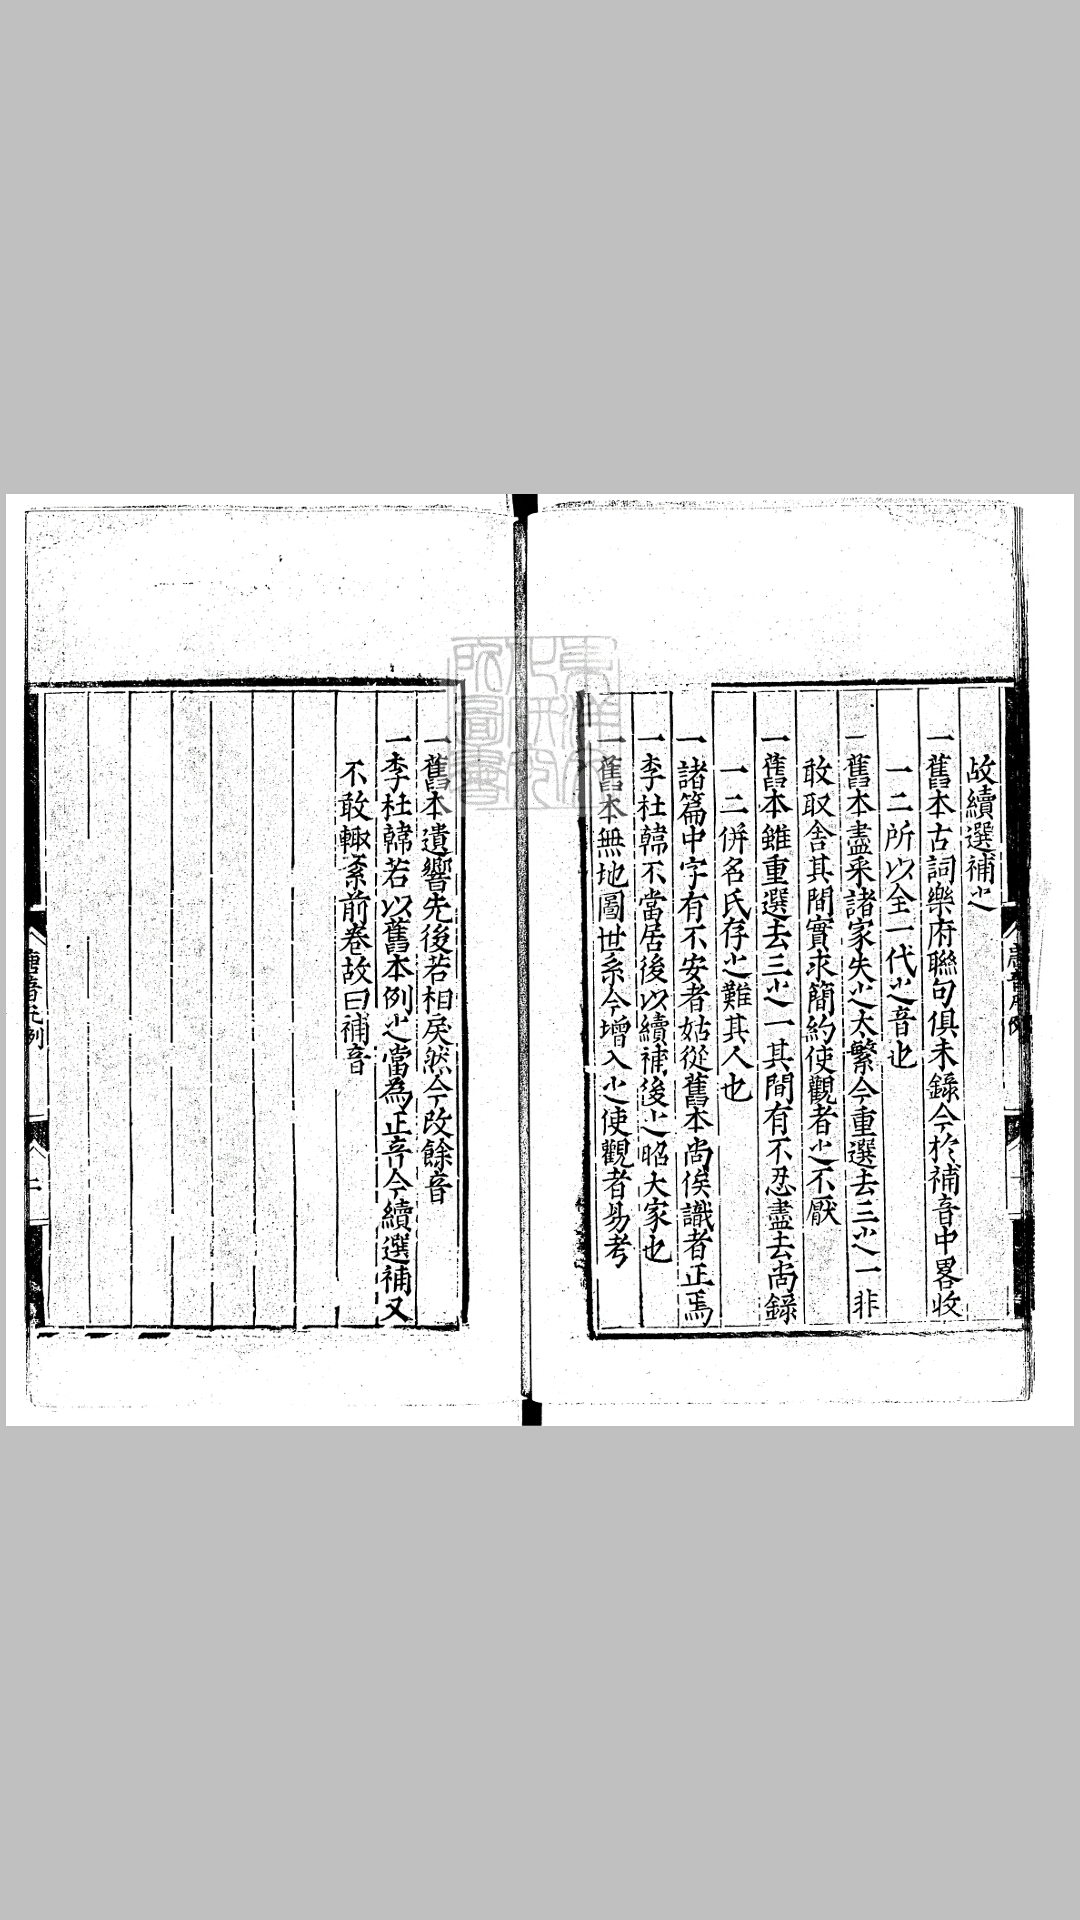 故續選補之
一舊本古詞樂府聯句俱未錄今於補音中畧收
一二所以全一代之音也
一舊本盡采諸家失之太繁今重選去三之一非
敢取舍其間實求簡約使觀者之不厭
一舊本雖重選去三之一其間有不忍盡去尚錄
一二併名氏存之難其人也
一諸篇中字有不安者姑從舊本尚俟識者正焉
一李杜韓不當居後以續補後之昭大家也
一舊本無地圖世系今增入之使觀者易考
一舊本遺響先後若相戾然今改餘音
一李杜韓若以舊本例之當為正音今續選補又
不敢輙紊前卷故曰補音
唐音凡例
二